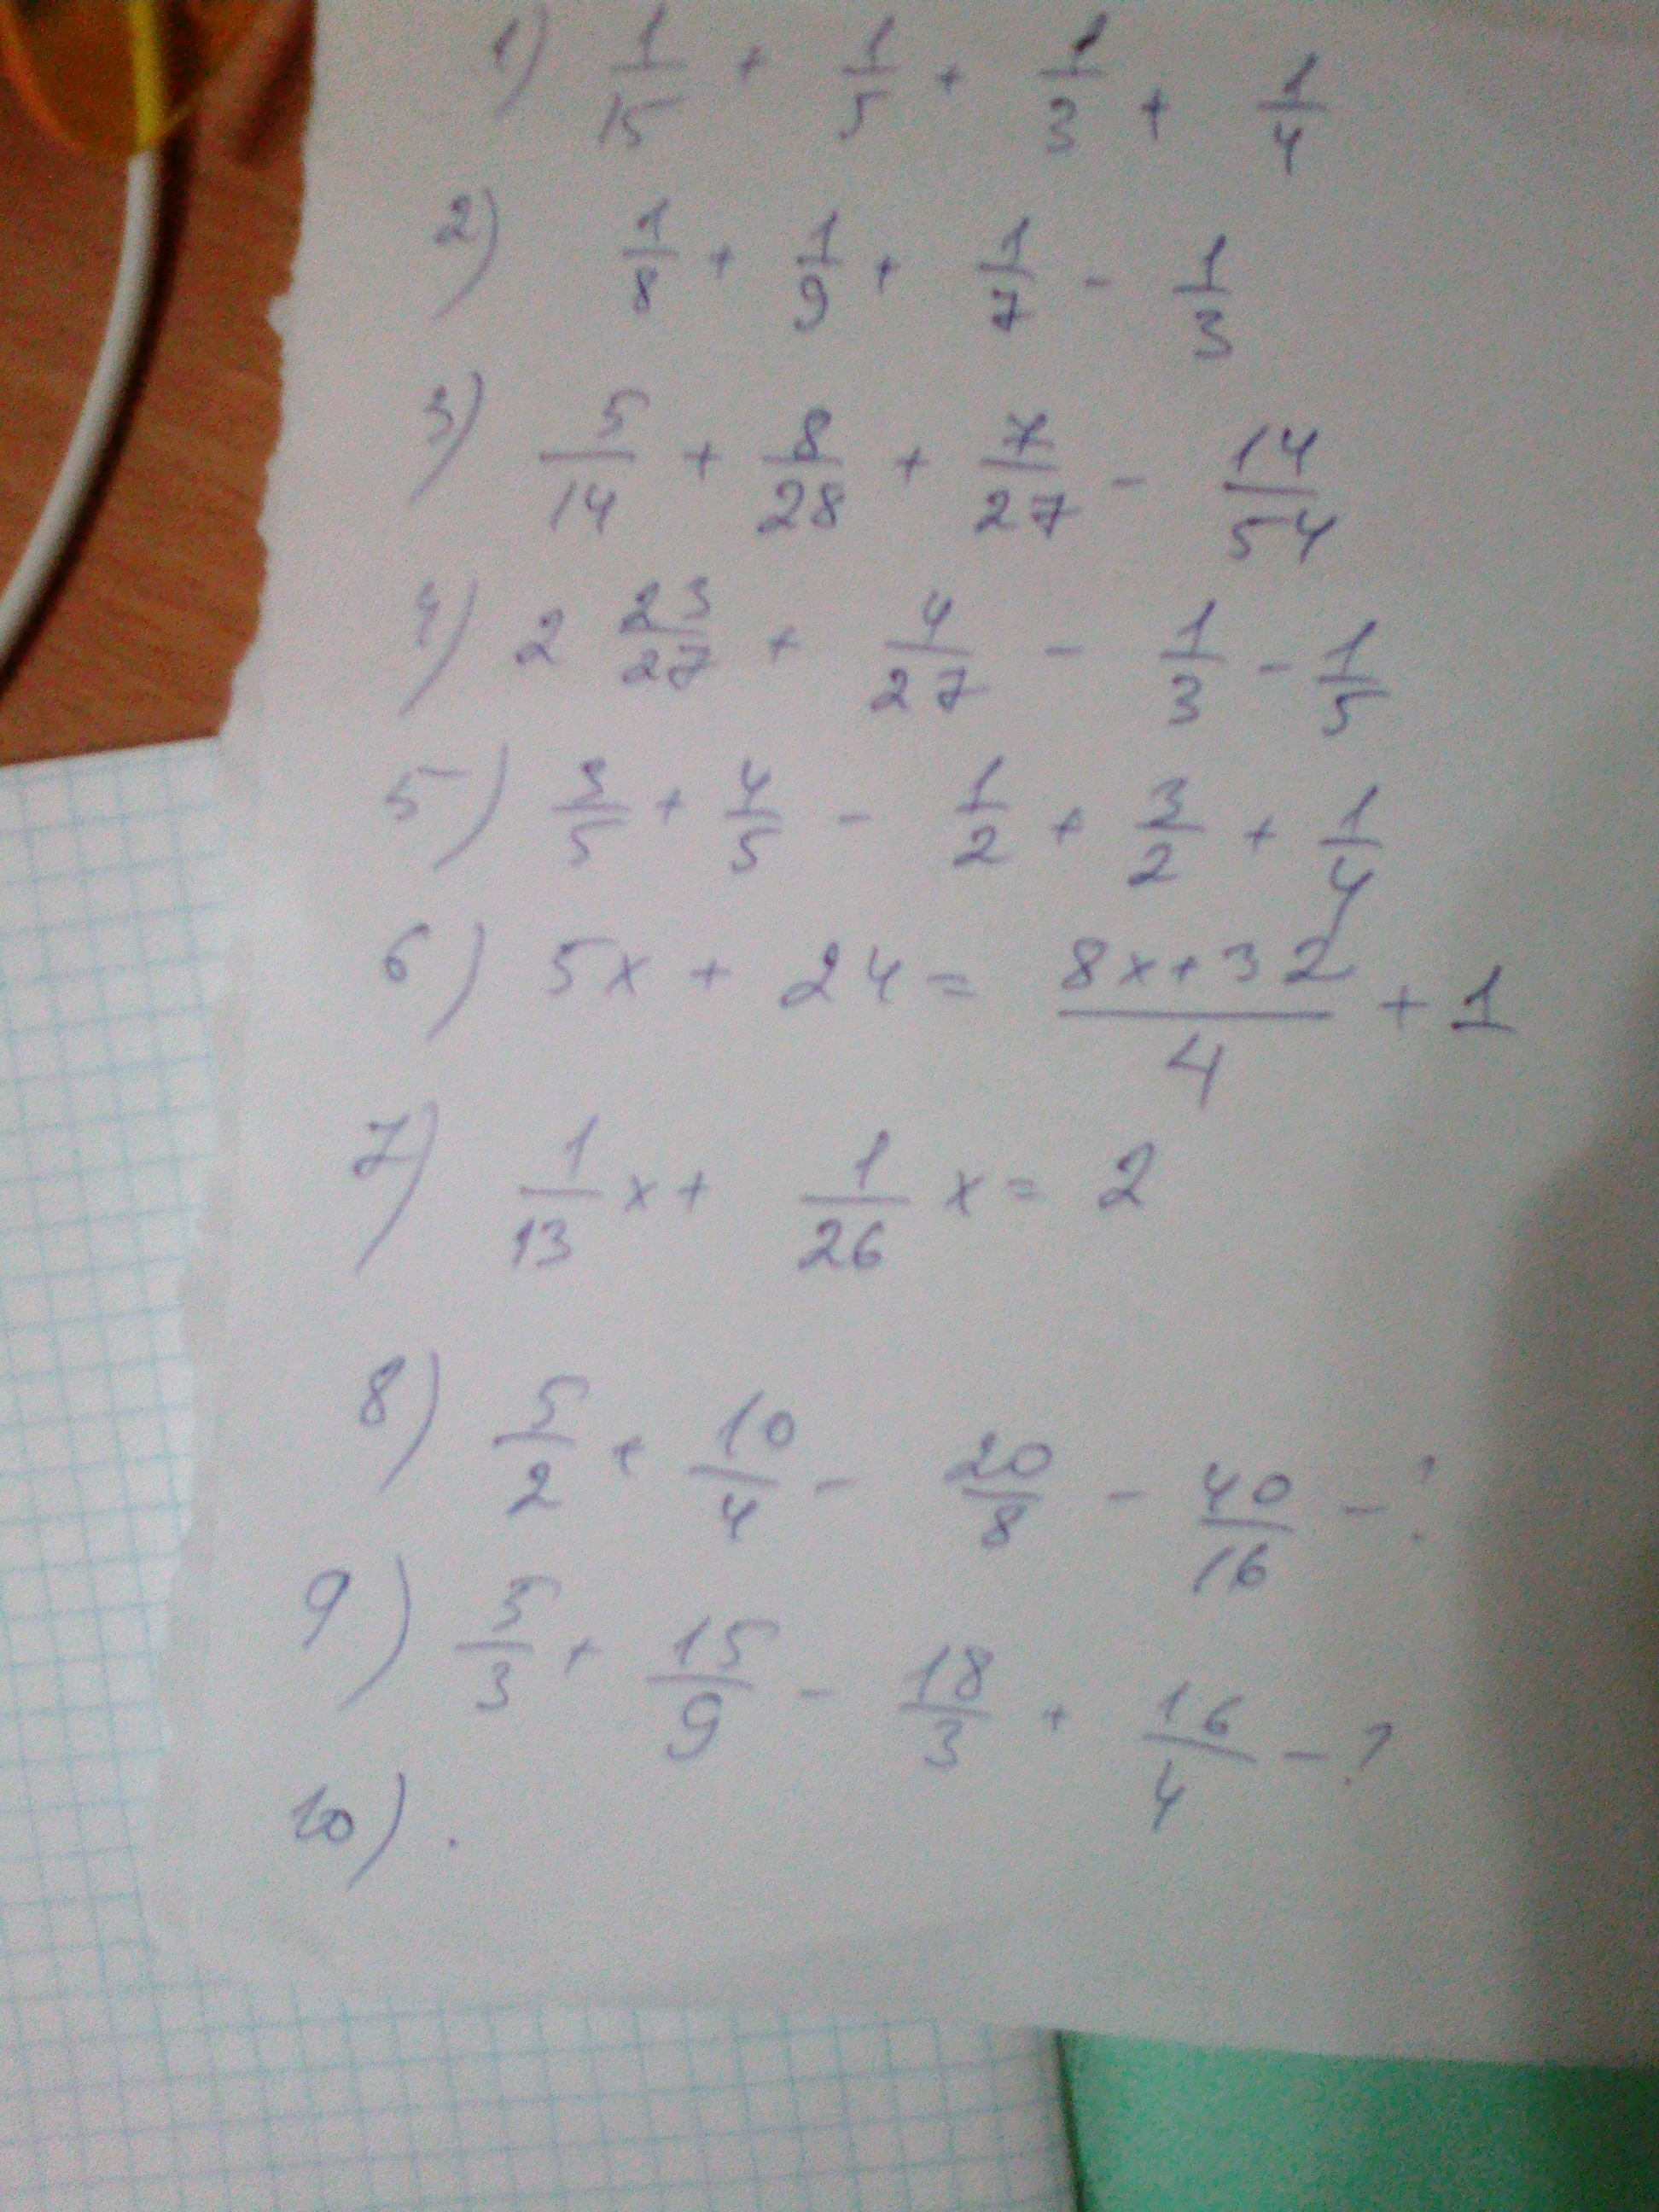 1) 1/15 + 1/5 + 1/3 + 1/4
2) 1/8 + 1/9 + 1/7 - 1/3
3) 5/14 + 8/28 + 7/27 - 14/54
4) 2 23/27 + 4/27 - 1/3 - 1/5
5) 3/5 + 4/5 - 1/2 + 3/2 + 1/4
6) 5x + 24 = (8x+32)/4 + 1
7) 1/13 x + 1/26 x = 2
8) 5/2 + 10/4 - 20/8 - 40/16 - ?
9) 5/3 + 15/9 - 18/3 + 16/4 - ?
10) .